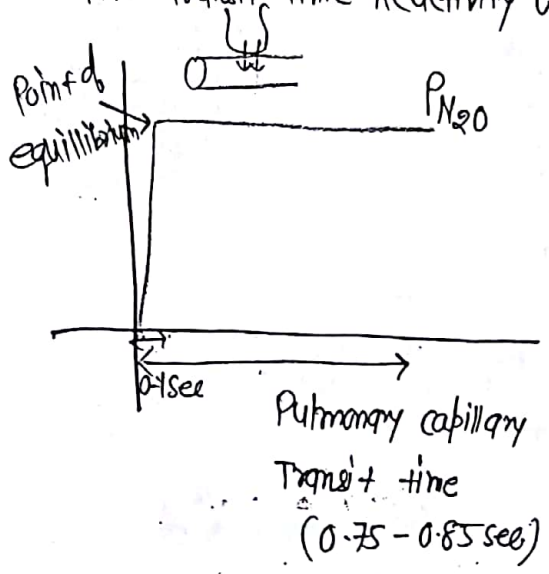 Transit time Reactivity
Point of
equillibrium
PN2O
0.1 sec
Pulmonary capillary
Transit time
(0.75 - 0.85 sec)